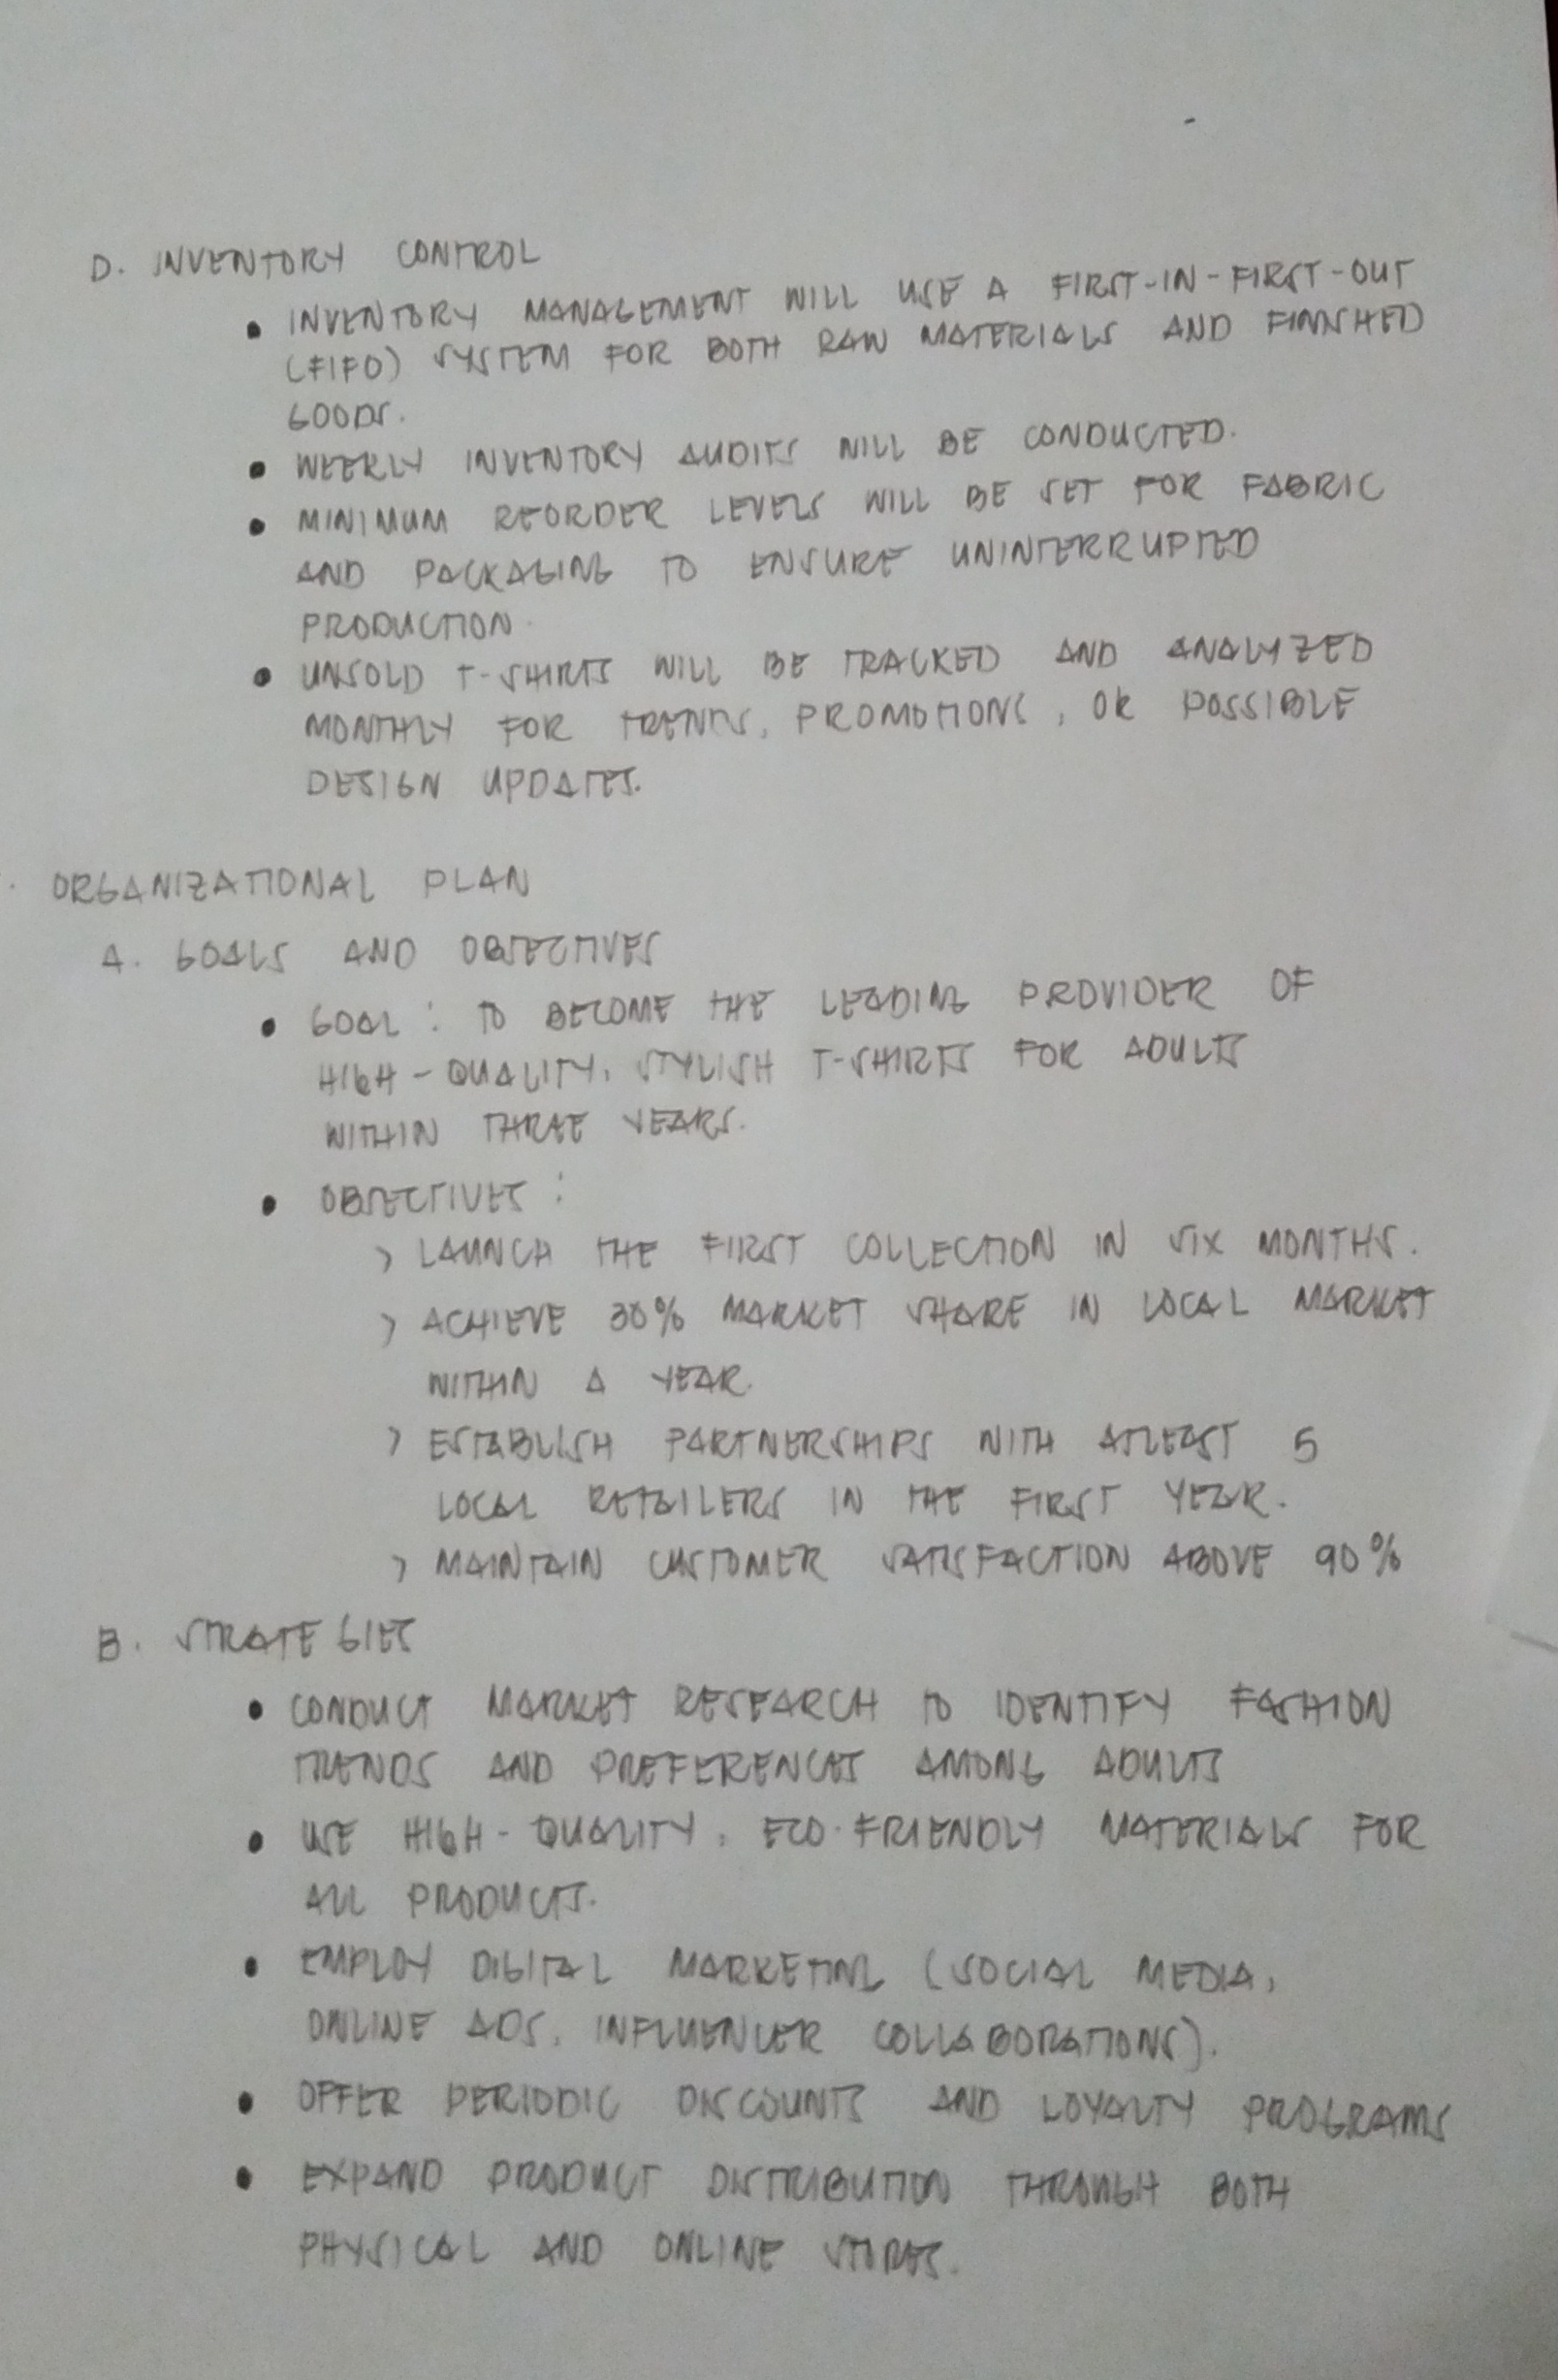 D. INVENTORY CONTROL
• INVENTORY MANAGEMENT WILL USE A FIRST-IN-FIRST-OUT
(FIFO) SYSTEM FOR BOTH RAW MATERIALS AND FINISHED
GOODS.
• WEEKLY INVENTORY AUDITS WILL BE CONDUCTED.
• MINIMUM REORDER LEVELS WILL BE SET FOR FABRIC
AND PACKAGING TO ENSURE UNINTERRUPTED
PRODUCTION.
• UNSOLD T-SHIRTS WILL BE TRACKED AND ANALYZED
MONTHLY FOR TRENDS, PROMOTIONS, OR POSSIBLE
DESIGN UPDATES.
ORGANIZATIONAL PLAN
A. GOALS AND OBJECTIVES
• GOAL: TO BECOME THE LEADING PROVIDER OF
HIGH-QUALITY, STYLISH T-SHIRTS FOR ADULTS
WITHIN THREE YEARS.
• OBJECTIVES:
> LAUNCH THE FIRST COLLECTION IN SIX MONTHS.
> ACHIEVE 30% MARKET SHARE IN LOCAL MARKET
WITHIN A YEAR.
> ESTABLISH PARTNERSHIPS WITH ATLEAST 5
LOCAL RETAILERS IN THE FIRST YEAR.
> MAINTAIN CUSTOMER SATISFACTION ABOVE 90%
B. STRATEGIES
• CONDUCT MARKET RESEARCH TO IDENTIFY FASHION
TRENDS AND PREFERENCES AMONG ADULTS
• USE HIGH-QUALITY, ECO-FRIENDLY MATERIALS FOR
ALL PRODUCTS.
• EMPLOY DIGITAL MARKETING (SOCIAL MEDIA,
ONLINE ADS, INFLUENCER COLLABORATIONS).
• OFFER PERIODIC DISCOUNTS AND LOYALTY PROGRAMS
• EXPAND PRODUCT DISTRIBUTION THROUGH BOTH
PHYSICAL AND ONLINE STORES.